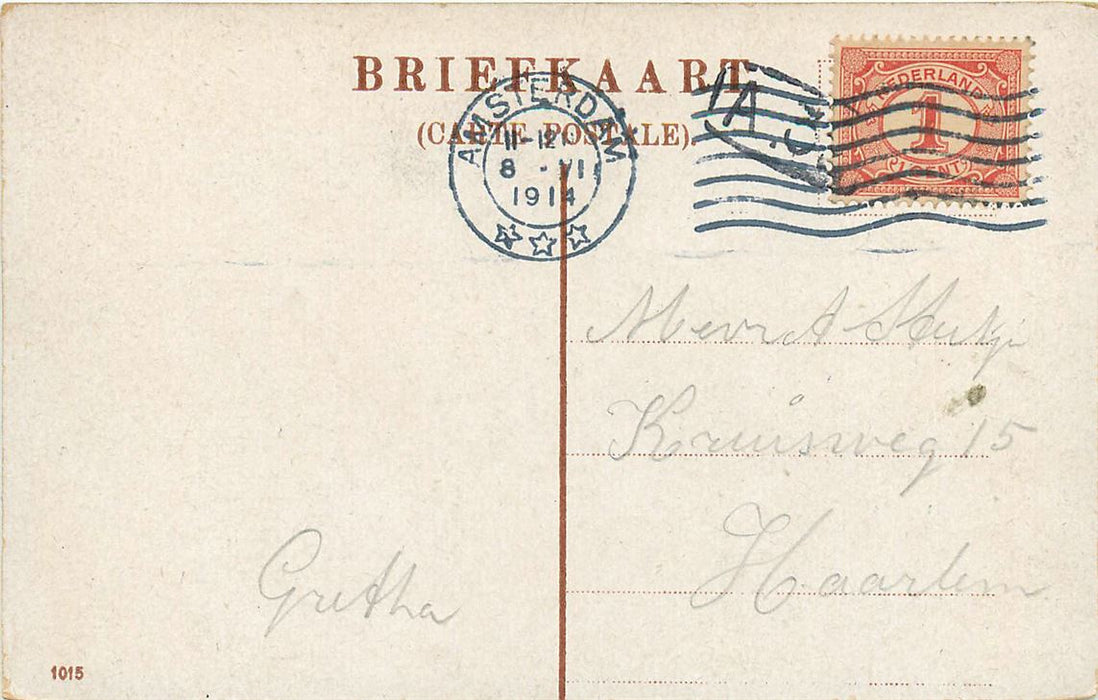 BRIEFKAART
(CARTE POSTALE).
AMSTERDAM
11-12
8 .VII
1914
NEDERLAND
1
1 CENT
Mevr A
Kruisweg 15
Haarlem
Gretha
1015